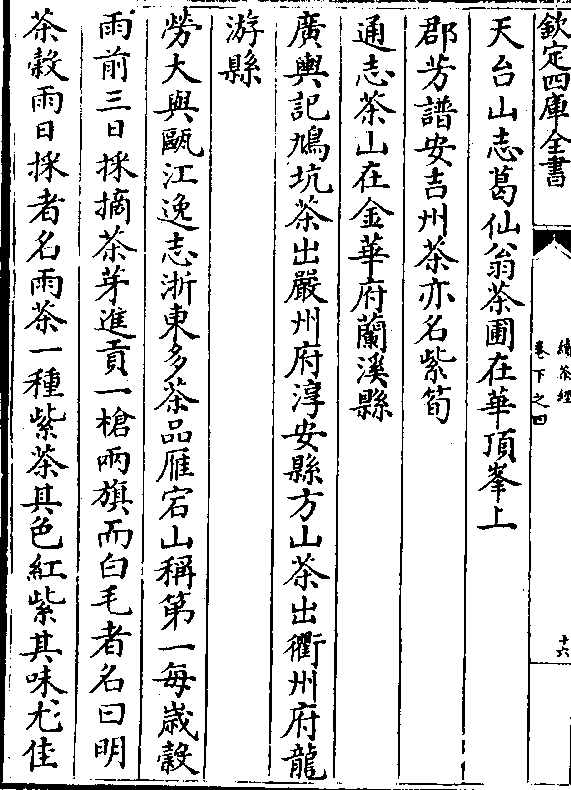 欽定四庫全書
續茶經
卷下之四
十六
天台山志葛仙翁茶圃在華頂峯上
郡芳譜安吉州茶亦名紫筍
通志茶山在金華府蘭溪縣
廣輿記鳩坑茶出嚴州府淳安縣方山茶出衢州府龍
游縣
勞大與甌江逸志浙東多茶品雁宕山稱第一每歲穀
雨前三日採摘茶芽進貢一槍兩旗而白毛者名曰明
茶穀雨日採者名雨茶一種紫茶其色紅紫其味尤佳